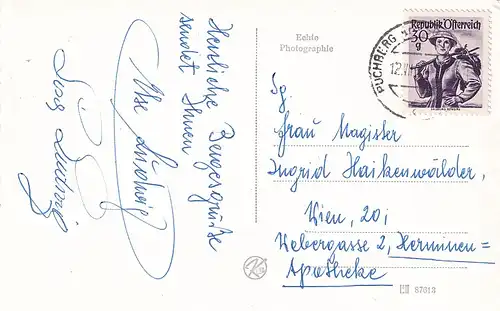 Herzliche Bergesgrüße
sendet Ihnen
Ilse Ludwig
Ludwig
Echte
Photographie
Republik Österreich
30
g
PUCHBERG
12.VI
Sg.
Frau Magister
Ingrid Haikenwälder,
Wien, 20;
Webergasse 2, Herminen=
Apotheke
87613